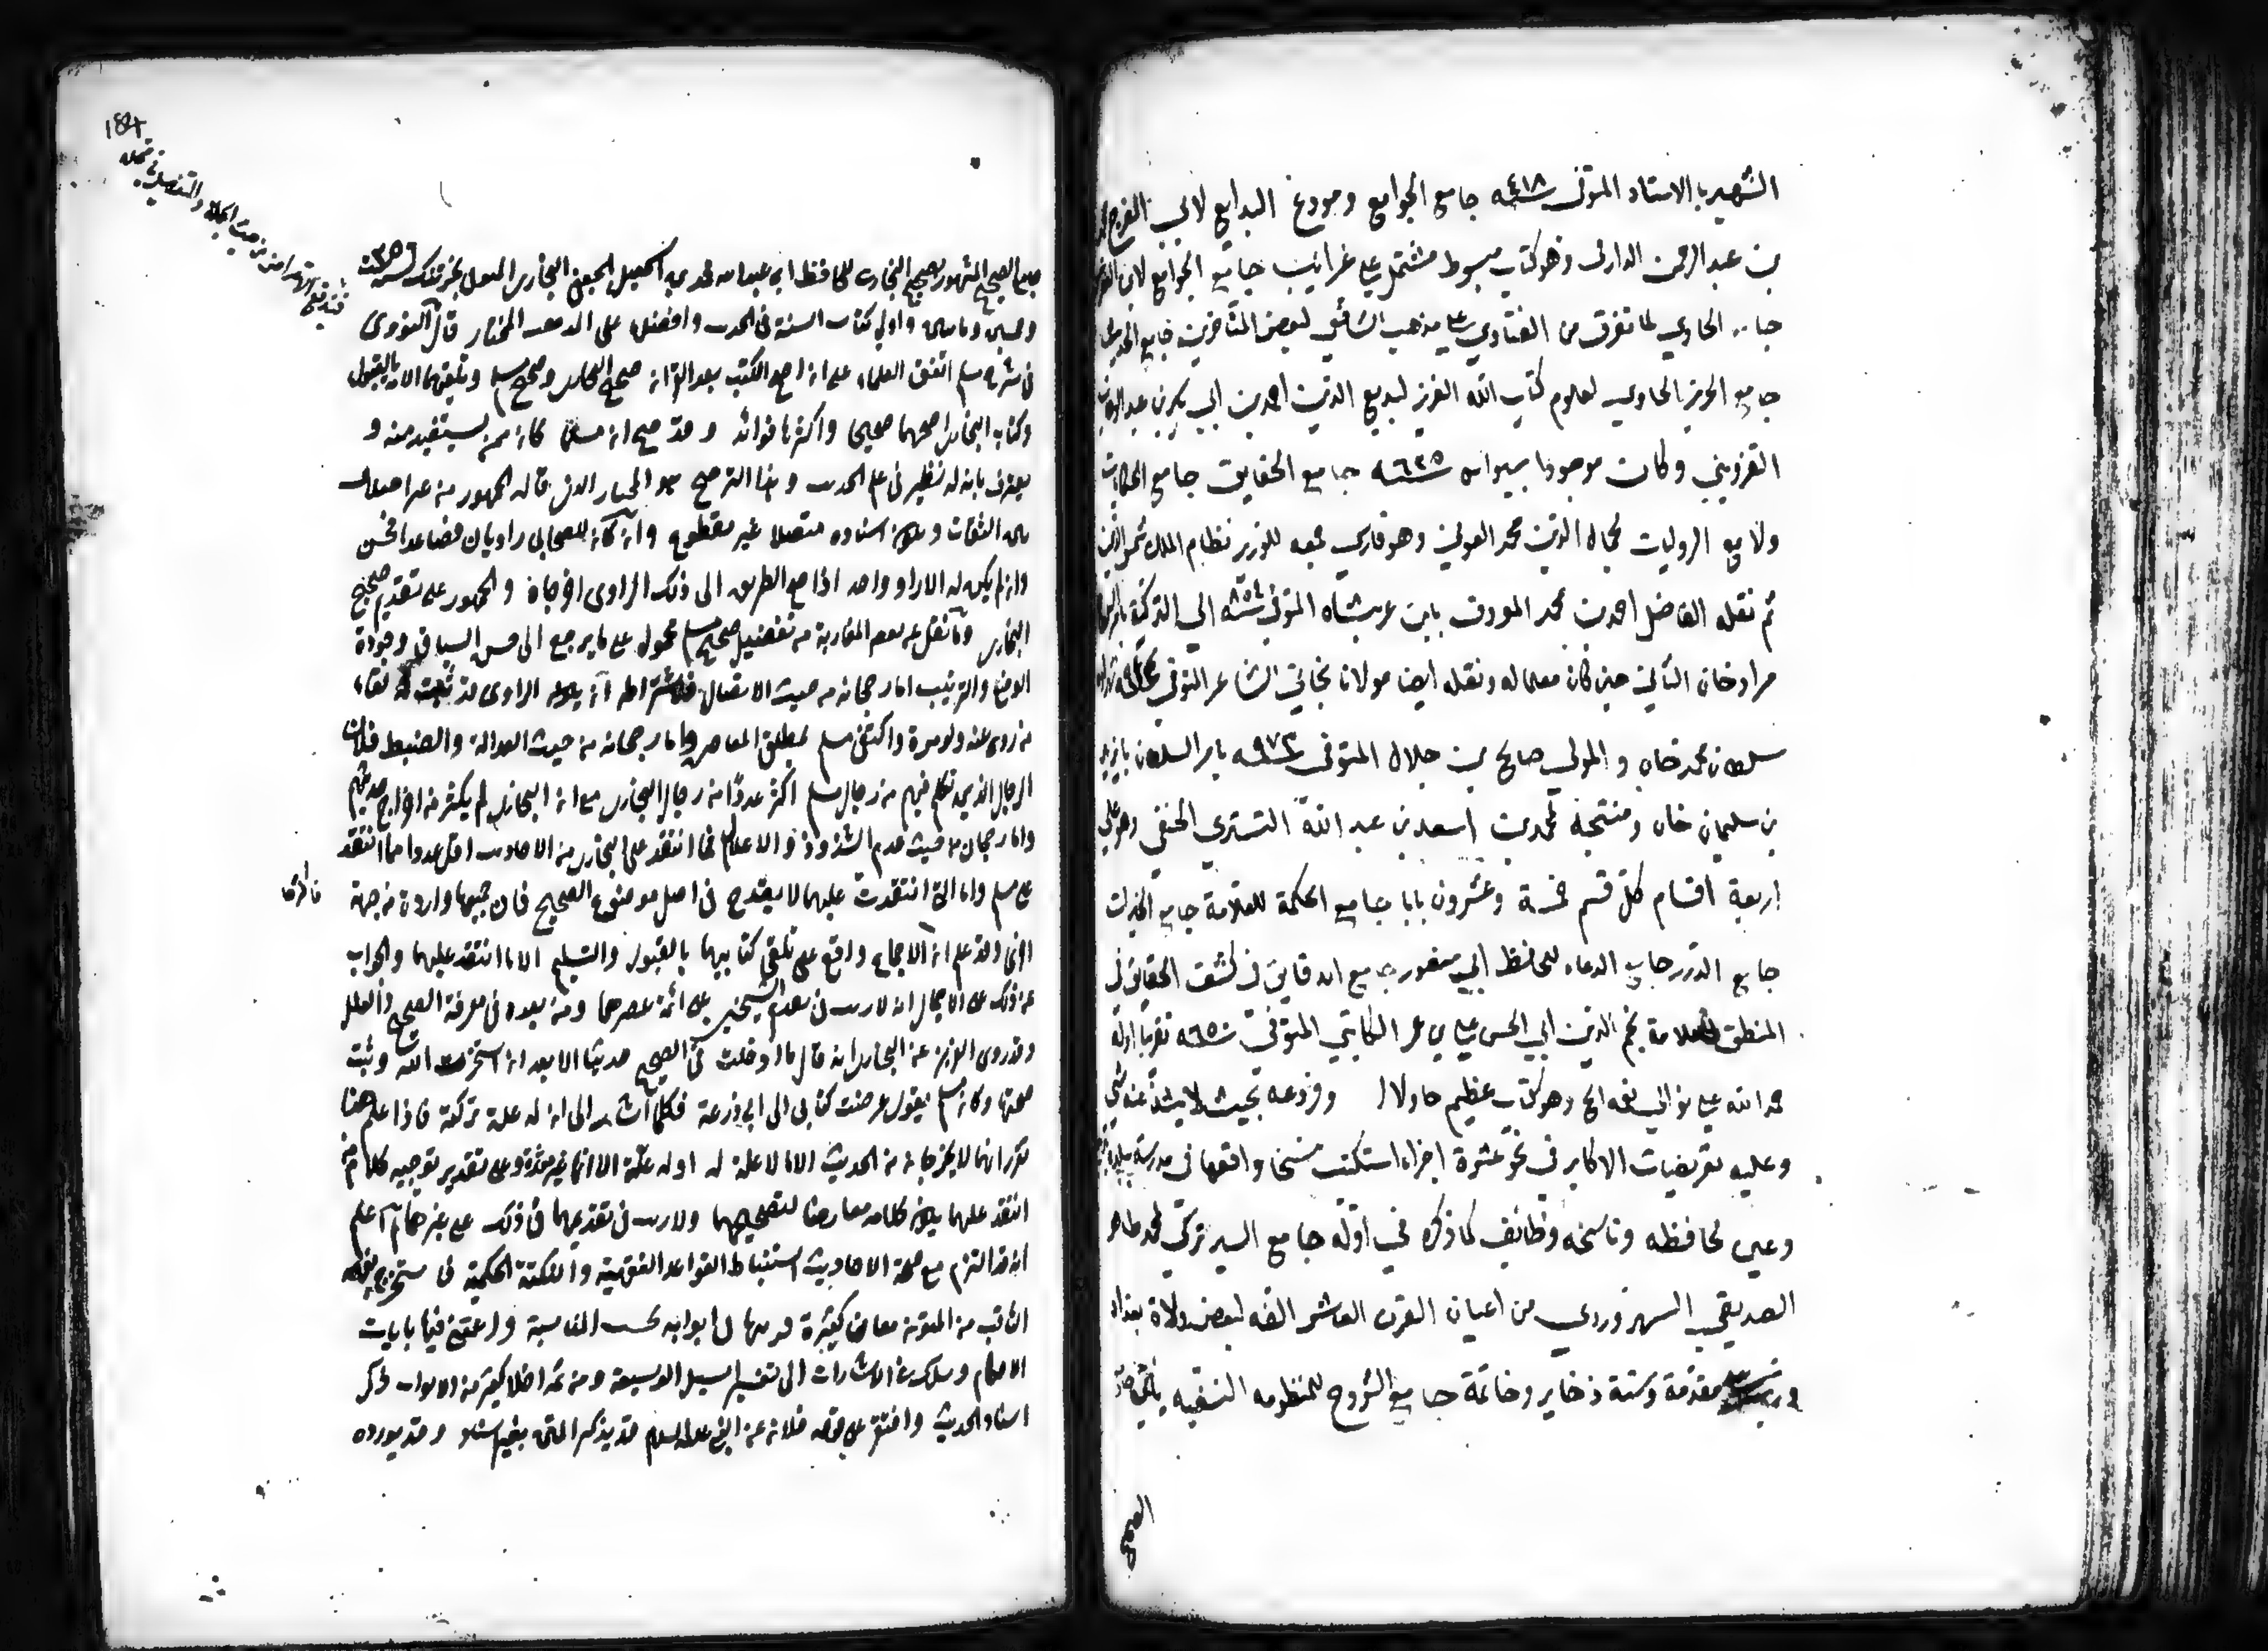 الشهير بالاستاد المتوفى سنة ٤١٨ جامع الجوامع ومودع البدايع لابي الفرج محمد
بن عبد الرحمن الدارمى وهو كتاب مبسوط مشتمل على غرائب جامع الجوامع لابن
الحاوي لما تفرق من الفتاوي على مذهب الشافعي لبعض المتأخرين جامع
جامع الحرز الحاوي لعلوم كتاب الله العزيز لبديع الدين احمد بن ابي بكر بن عبد الوهاب
القزويني وكان موجودا بسيواس سنة ٦٢٥ جامع الحقايق جامع الحكايات
ولامع الروايات لجمال الدين محمد العوفي وهو فارسي جمعه للوزير نظام الملك شمس الدين
ثم نقله الفاضل احمد بن محمد المعروف بابن عربشاه المتوفى سنة ٨٥٤ الى التركية بامر
مراد خان الثاني حين كان معلما له ونقله ايضا مولانا نجاتي الشاعر المتوفى
سلطان محمد خان و المولى صالح بن جلال المتوفى سنة ٩٧٣ بامر السلطان بايزيد
بن سليمان خان ومنتخبه لمحمد بن اسعد بن عبد الله التستري الحنفي وهو على
اربعة اقسام كل قسم خمسة وعشرون بابا جامع الحكمة للعلامة جامع الخيرات
جامع الدرر جامع الدعاء للحافظ ابي منصور جامع الدقايق في كشف الحقايق في
المنطق للعلامة نجم الدين ابي الحسن علي بن عمر الكاتبي المتوفى سنة ٦٥ تقريبا اوله
حمد الله على نوالي نعمه الخ وهو كتاب عظيم حاو وفروعه بحيث لا يشذ عنه شي
وعليه تقريضات الاكابر في نحو عشرة اجزاء استكتب نسخا واقفها في مدرسة
وعين لحافظه وناسخه وظائف كما ذكره في اوله جامع السير تركي لمحمد طاهر
الصديقي السهروردي من اعيان القرن العاشر الفه لبعض ولاة بغداد
مقدمة وستة ذخاير وخاتمة جامع الشروح للمنظومه النسفيه
الصحيح
جامع الصحيح المشهور بصحيح البخارى للحافظ ابى عبد الله محمد بن اسمعيل الجعفى البخارى المتوفى بخرتنك
وخمسين ومائتين واول كتاب السنة فى الحديث وافضل على المذهب المختار قال النووى
فى شرح مسلم اتفق العلماء على ان اصح الكتب بعد القرآن صحيح البخارى وصحيح مسلم وتلقيهما الامة بالقبول
وكتاب البخارى اصحهما صحيحا واكثرها فوائد وقد صح ان مسلما كان ممن يستفيد منه و
يعترف بانه له نظير فى علم الحديث وهذا الترجيح هو المختار الذى قاله الجمهور
الثقات ويكون اسناده متصلا غير مقطوع وان كان للصحابى راويان فصاعدا فحسن
وان لم يكن له الا راو واحد اذا صح الطريق الى ذلك الراوى اخرجاه والجمهور على تقديم صحيح
البخارى وما نقل عن بعض المغاربة من تفضيل صحيح مسلم محمول على ما يرجع الى حسن السياق وجودة
الوضع والترتيب اما رجحانه من حيث الاتصال فلاشتراطه ان يكون الراوى قد ثبت له لقاء
من روى عنه ولو مرة واكتفى مسلم بمطلق المعاصرة واما رجحانه من حيث العدالة والضبط فلان
الرجال الذين تكلم فيهم من رجال مسلم اكثر عددا من رجال البخارى مع ان البخارى لم يكثر من اخراج حديثهم
واما رجحانه من حيث عدم الشذوذ والاعلال فما انتقد على البخارى من الاحاديث اقل عددا مما انتقد
على مسلم واما التى انتقدت عليهما لا يقدح فى اصل موضوع الصحيح فان جميعها واردة من جهة
اخرى وقد علم ان الاجماع واقع على تلقى كتابيهما بالقبول والتسليم الا ما انتقد عليهما والجواب
عن ذلك على الاجمال انه لا ريب فى تقديم الشيخين على ائمة عصرهما ومن بعده فى معرفة الصحيح والعلل
وقد روى الفربرى عن البخارى انه قال ما ادخلت فى الصحيح حديثا الا بعد ان استخرت الله وثبت
صحته وكان مسلم يقول عرضت كتابى الى ابى زرعة فكلما اشار الى ان له علة تركته فاذا علم هذا
تقرر انهما لا يخرجان من الحديث الا ما لا علة له او له علة الا انها غير مؤثرة وعلى تقدير توجيه كلام من
انتقد عليهما يكون كلامه معارضا لتصحيحهما ولا ريب فى تقديمهما فى ذلك على غيرهما ثم اعلم
انه قد التزم مع صحة الاحاديث استنباط القواعد الفقهية والنكتة الحكمية فاستخرج بفهمه
الثاقب من المتون معانى كثيرة فرقها فى ابوابه بحسب المناسبة واعتنى فيها بايات
الاحكام وسلك فى الاشارات الى تفسيرها السبل الوسيعة ومن ثم اخلا كثير من الابواب ذكر
اسناد الحديث واقتصر على قوله فلان عن النبى عليه السلام قد يذكر المتن بغير اسناد وقد يورده